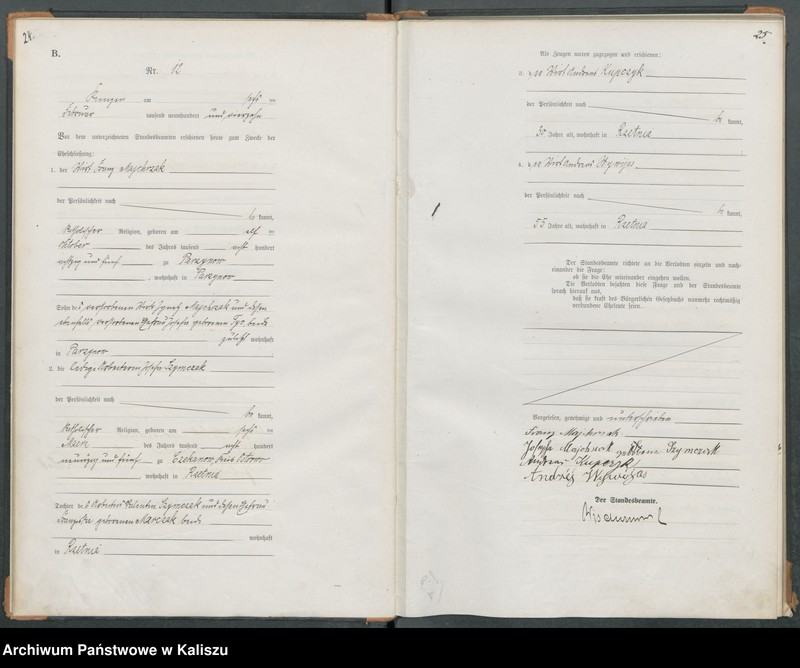 24.
B.
Nr. 12
am sechs ten
Februar tausend neunhundert und vierzehn
Vor dem unterzeichneten Standesbeamten erschienen heute zum Zwecke der
Eheschließung:
1. der Wirt Franz Majchrzak
der Persönlichkeit nach
be kannt,
katholischer Religion, geboren am elf ten
Oktober des Jahres tausend acht hundert
achtzig und fünf zu Parzynow
, wohnhaft in Parzynow
Sohn des verstorbenen Wirts Majchrzak und dessen
ebenfalls verstorbenen Ehefrau Josefa geborenen beide
zuletzt wohnhaft
in Parzynow
2. die ledige Arbeiterin Josefa Szymczak
der Persönlichkeit nach
be kannt,
katholischer Religion, geboren am sechs ten
März des Jahres tausend acht hundert
neunzig und fünf zu Czekanow, Kreis Ostrowo
, wohnhaft in Ksetnia
Tochter des Arbeiters Valentin Szymczak und dessen Ehefrau
Franziska geborenen Marczak beide
wohnhaft
in Ksetnia
25.
Als Zeugen waren zugezogen und erschienen:
3. der Wirt Andreas Kupczyk
der Persönlichkeit nach
be kannt,
30 Jahre alt, wohnhaft in Ksetnia
4. der Wirt Andreas
der Persönlichkeit nach
be kannt,
55 Jahre alt, wohnhaft in Ksetnia
Der Standesbeamte richtete an die Verlobten einzeln und nach-
einander die Frage:
ob sie die Ehe miteinander eingehen wollen.
Die Verlobten bejahten diese Frage und der Standesbeamte
sprach hierauf aus,
daß sie kraft des Bürgerlichen Gesetzbuchs nunmehr rechtmäßig
verbundene Eheleute seien.
Vorgelesen, genehmigt und unterschrieben
Franz Majchrzak
Josefa Majchrzak geborene Szymczak
Andreas Kupczyk
Andrzéj
Der Standesbeamte.
Archiwum Państwowe w Kaliszu